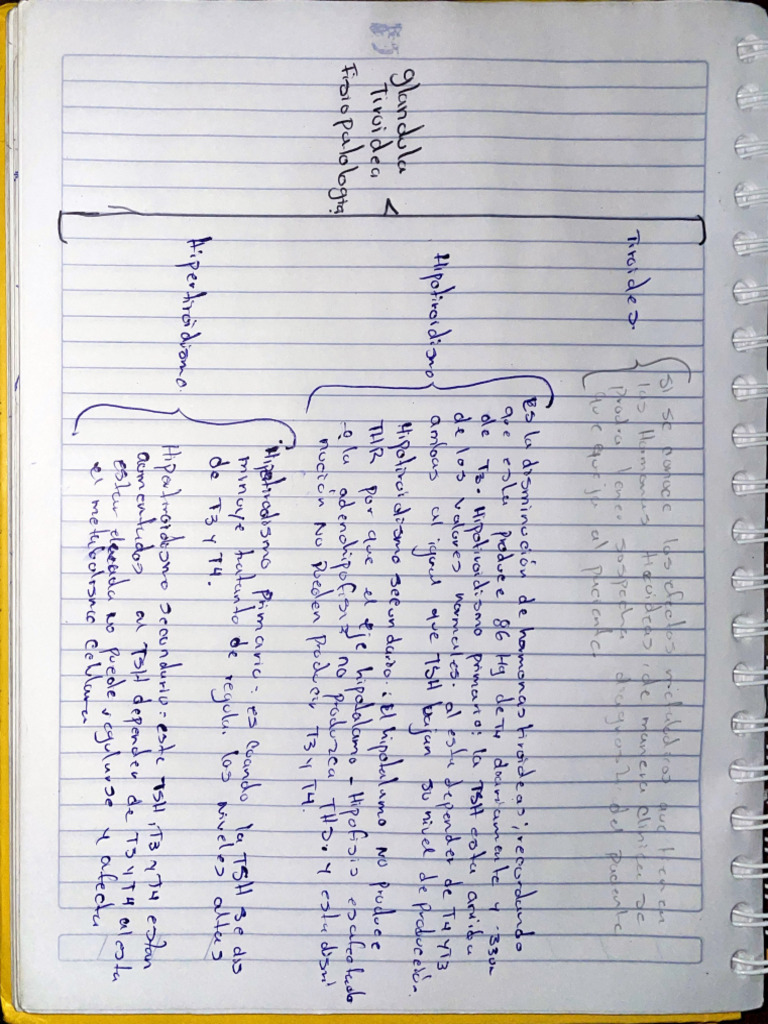 Glandula
Tiroidea
Fisiopatologia.
Tiroides.
Si se conoce los efectos metabolicos que tiene en
las Hormonas tiroideas, de manera clinica se
Podra tener sospecha diagnostica del paciente
que aqueja al paciente.
Hipotiroidismo
Es la disminución de hormonas tiroideas; recordando
que esta produce 86 Hg de T4 diariamente y .33
de T3. Hipotiroidismo primario: la TSH esta arriba
de los valores normales. al esta depender de T4 y T3
ambas al igual que TSH bajan su nivel de producción.
Hipotiroidismo secundario: El hipotalamo no produce
THR por que el Eje hipotalamo - Hipofisis es afectado
-o la adenohipofisis no produzca THS. y esta dismi
nución No pueden Producir T3 y T4.
Hipertiroidismo.
Hipertiroidismo Primario: es cuando la TSH se dis
minuye tratando de regular los niveles altos
de T3 y T4.
Hipertiroidismo secundario: esta TSH, T3 y T4 estan
aumentados al TSH depender de T3 y T4 al esta
estar elevada no puede regularse y afecta
el metabolismo Celular